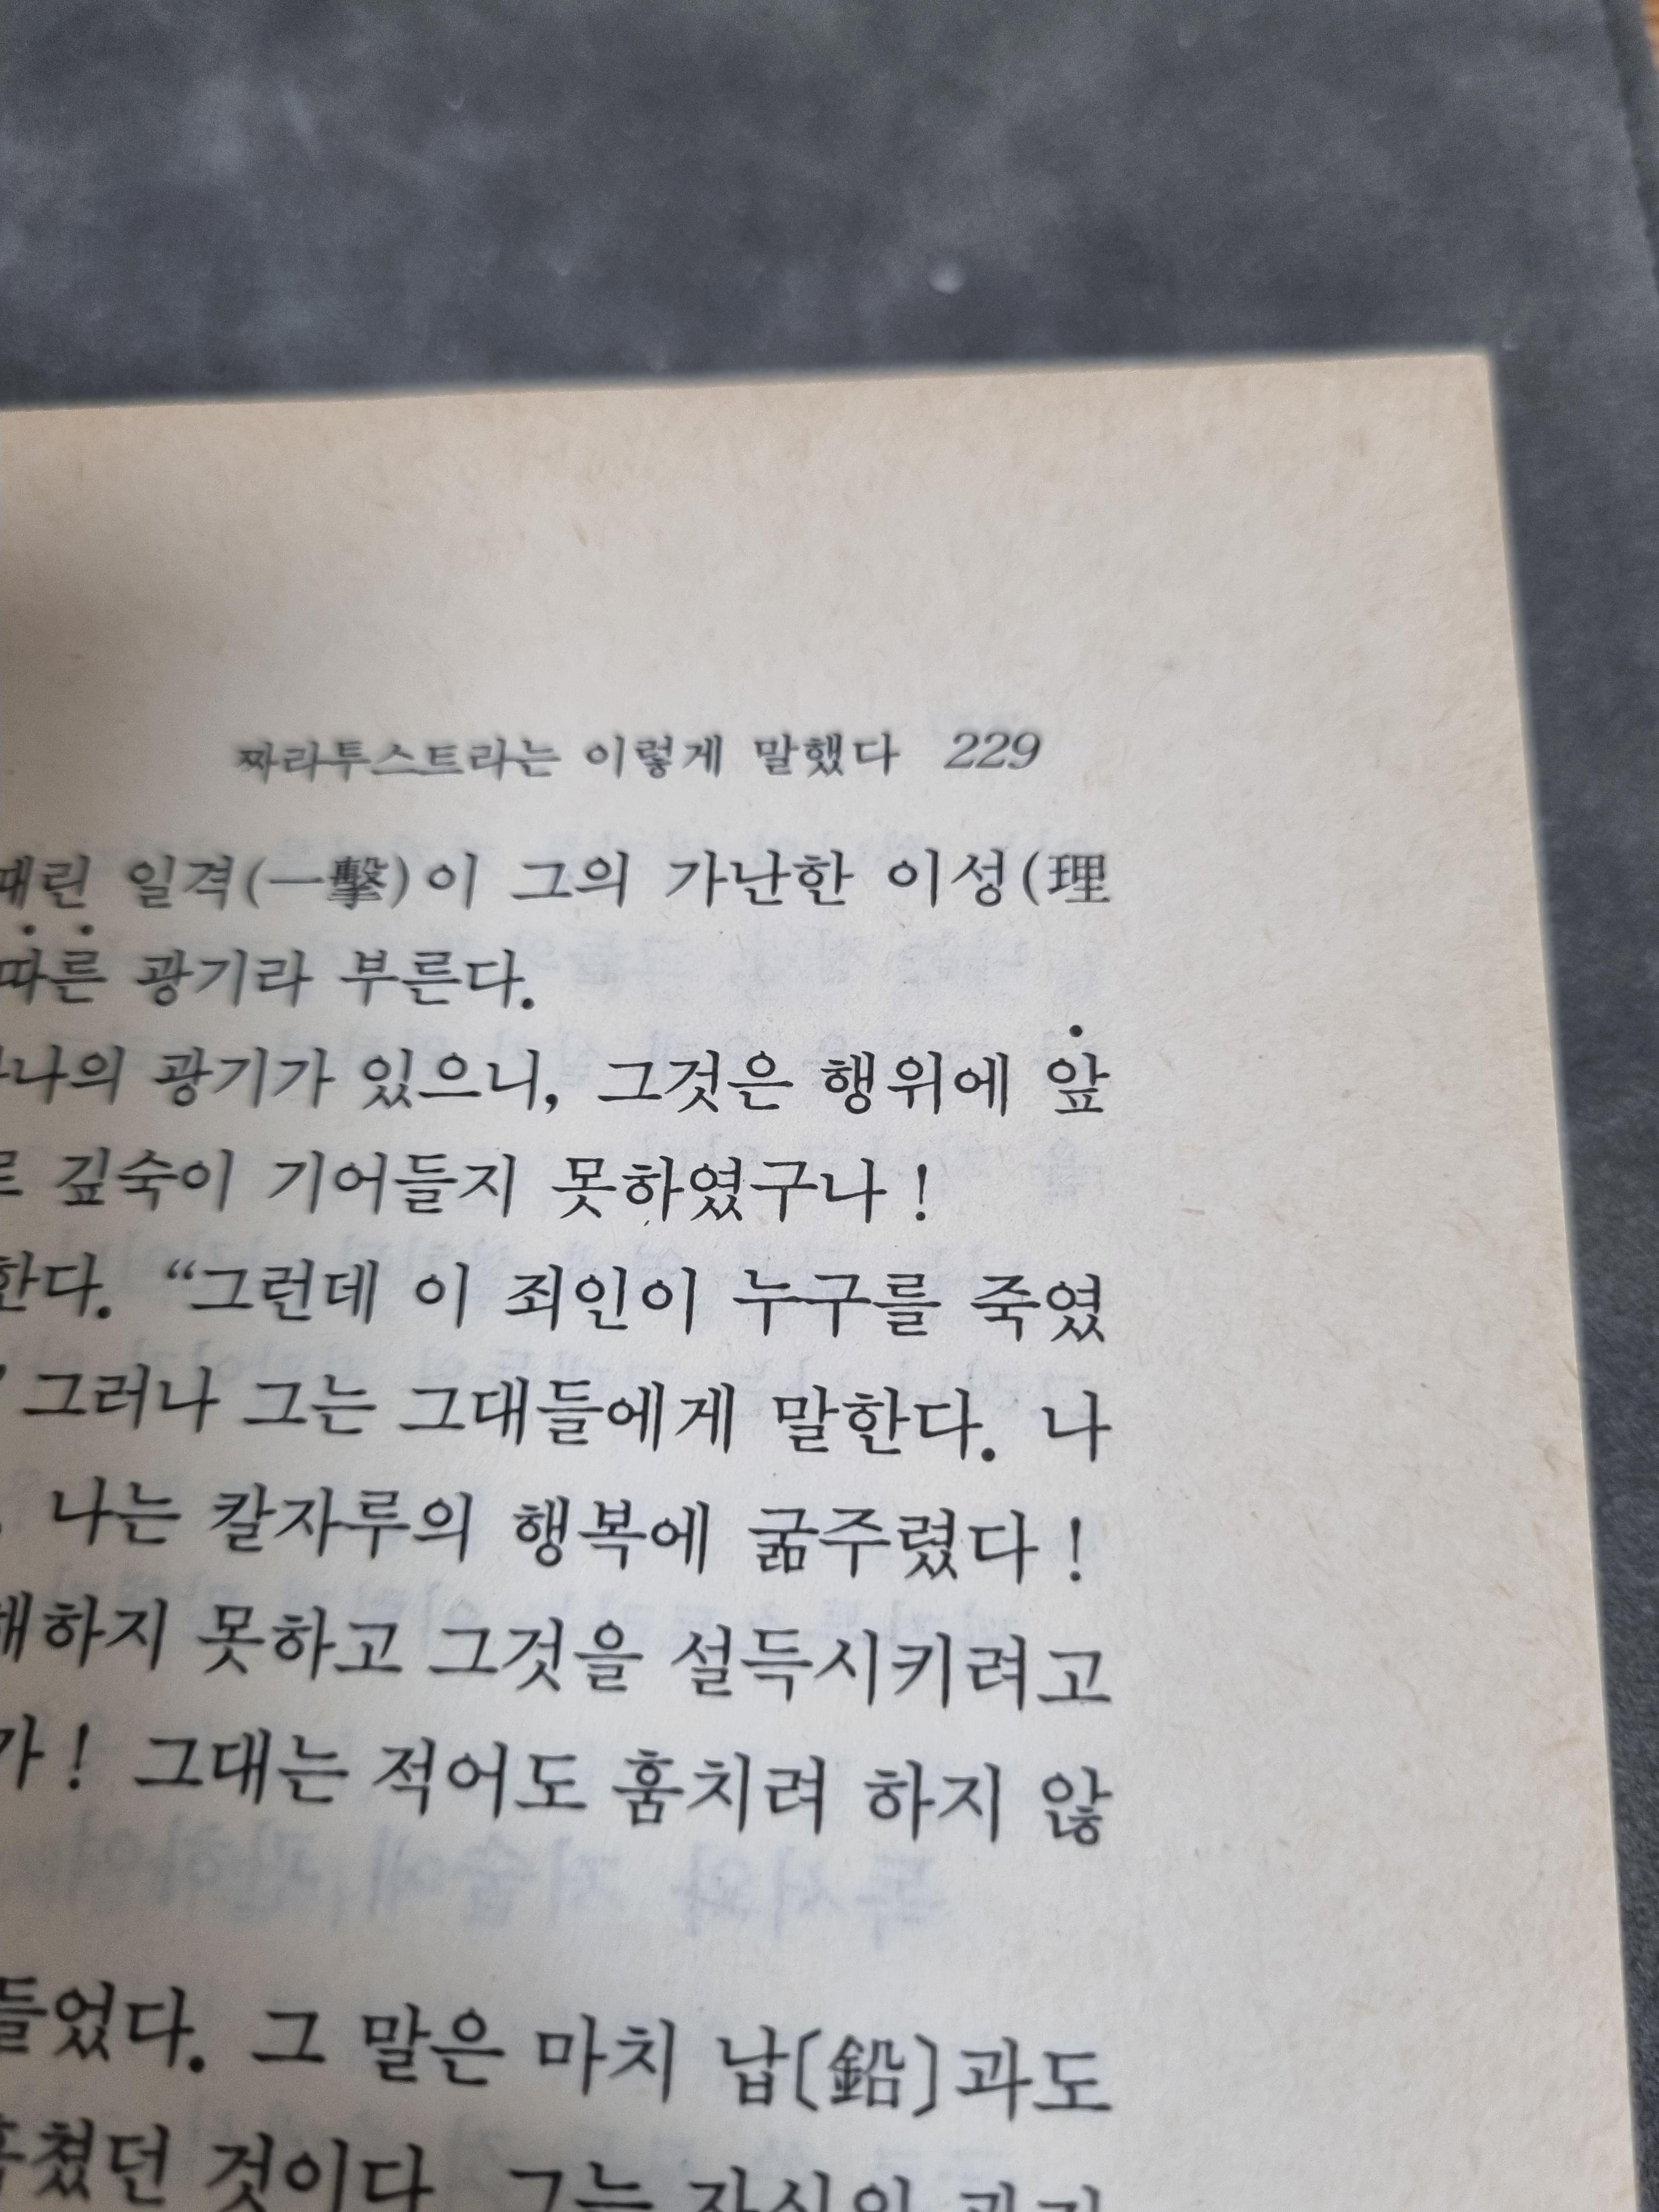 짜라투스트라는 이렇게 말했다 229
때린 일격(一擊)이 그의 가난한 이성(理
따른 광기라 부른다.
나의 광기가 있으니, 그것은 행위에 앞
깊숙이 기어들지 못하였구나!
한다. “그런데 이 죄인이 누구를 죽였
그러나 그는 그대들에게 말한다. 나
나는 칼자루의 행복에 굶주렸다!
해하지 못하고 그것을 설득시키려고
가! 그대는 적어도 훔치려 하지 않
들었다. 그 말은 마치 납〔鉛〕과도
쳤던 것이다. 그는 자신의